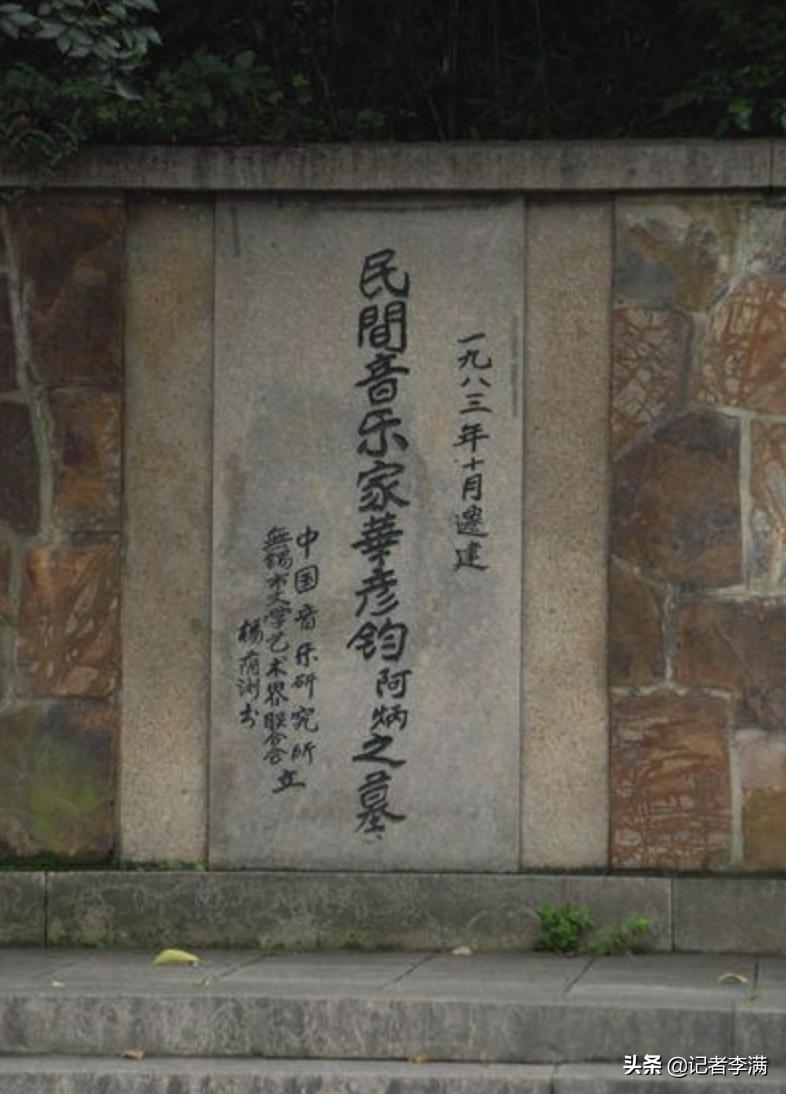 一九八三年十月遷建
民間音乐家華彦鈞阿炳之墓
中国音乐研究所
無锡市文学艺术界联合会立
楊荫浏书
头条 @记者李满